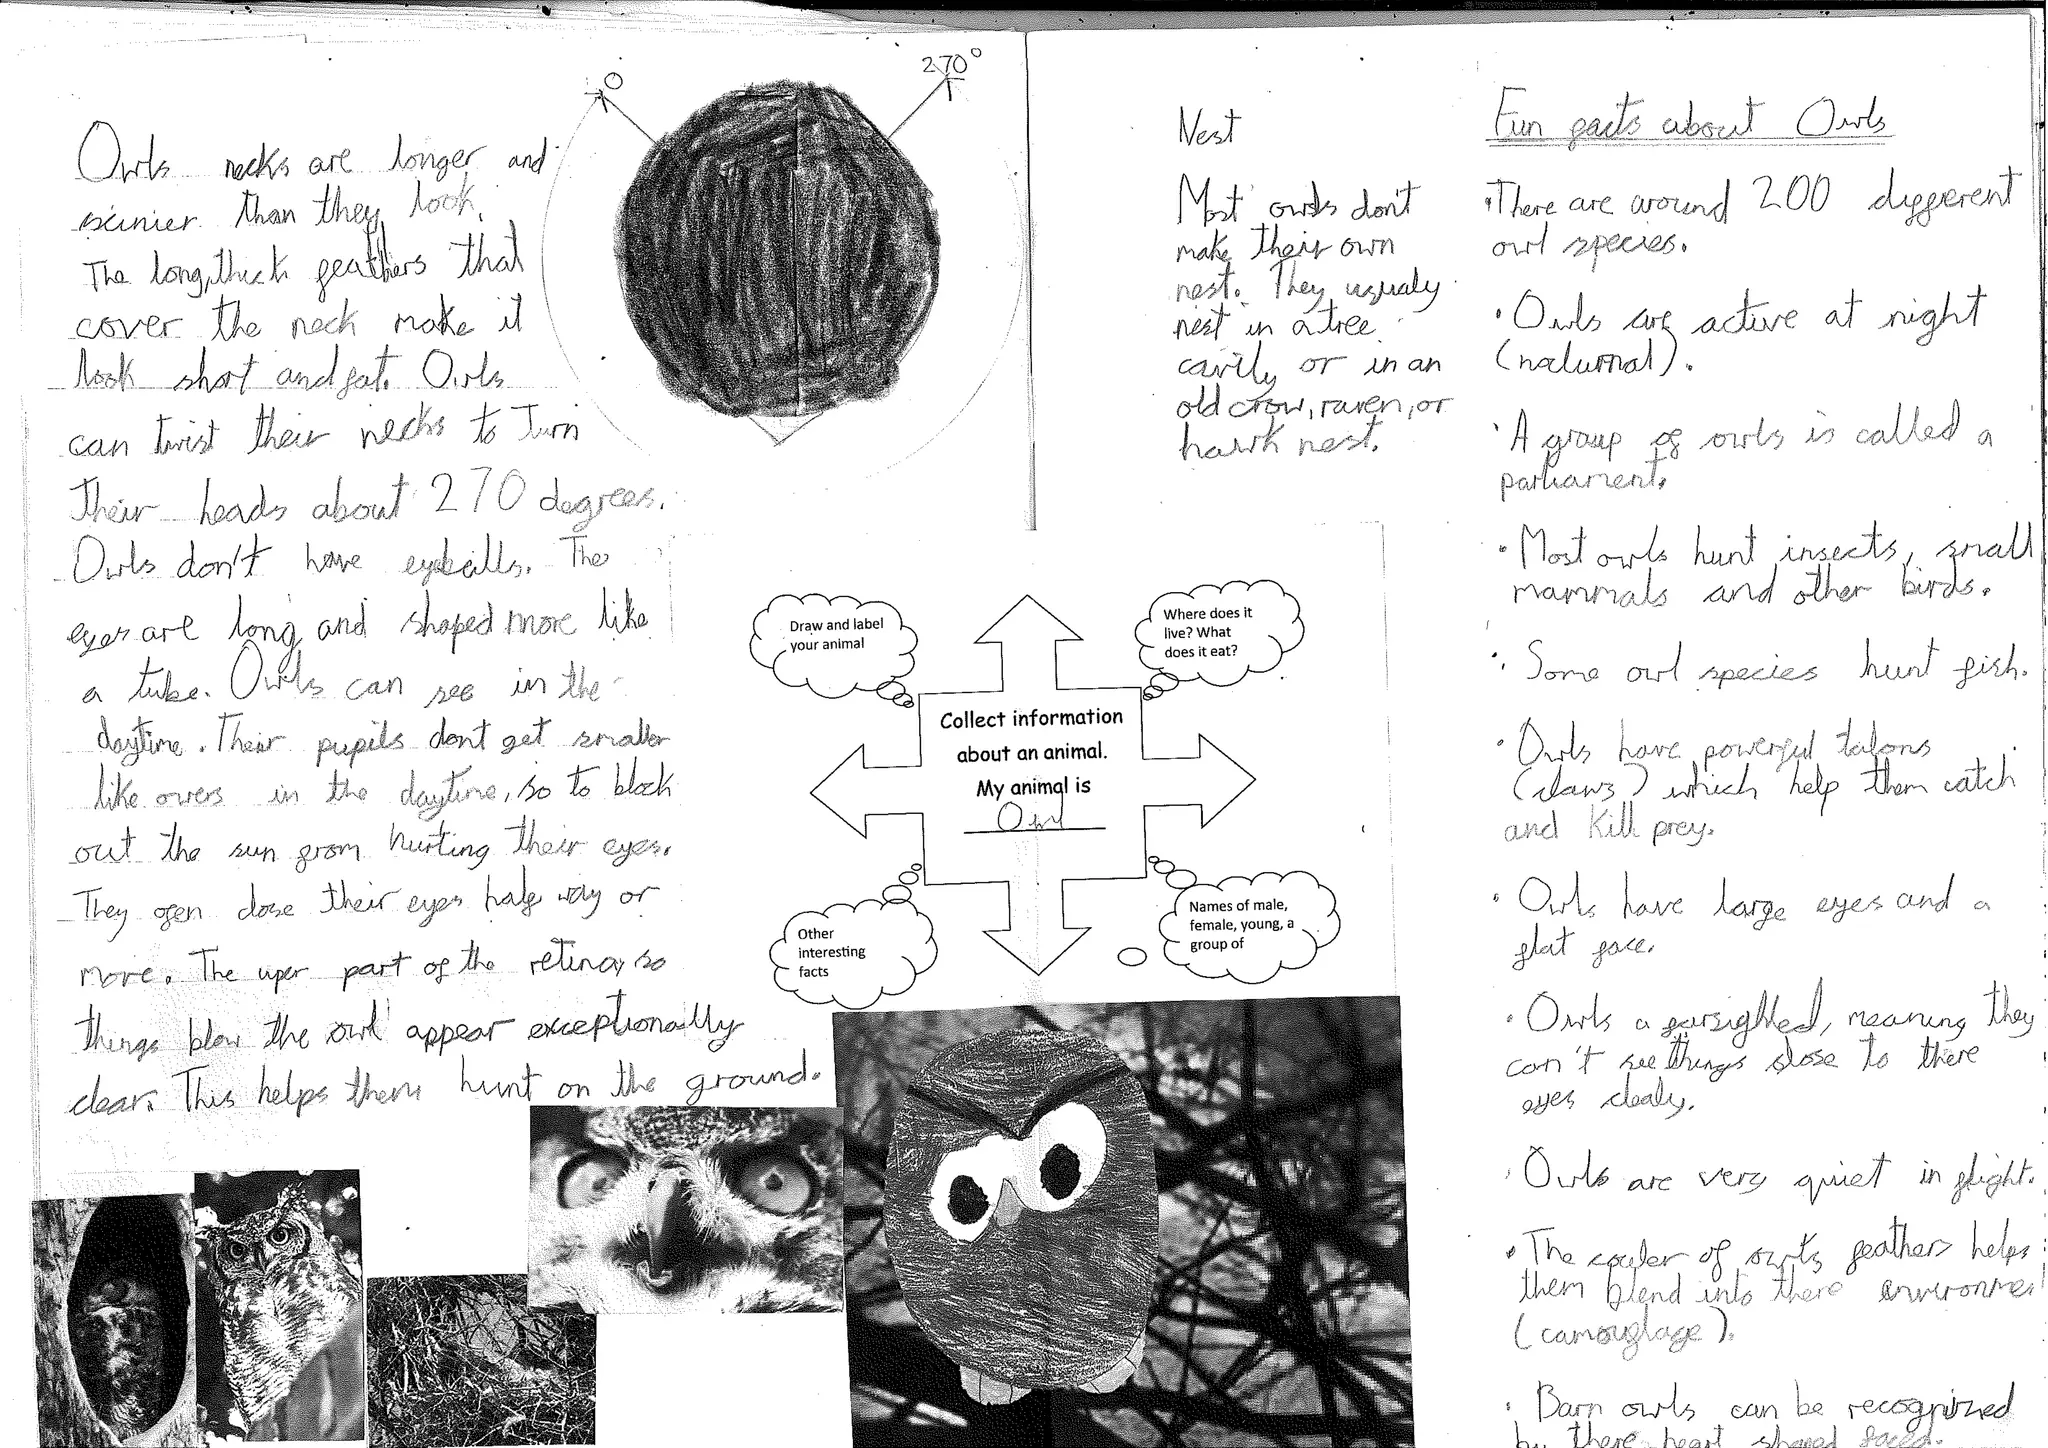 0
270°
Owls necks are longer and
scinier than they look.
The long, thick feathers that
cover the neck make it
look short and fat. Owls
can twist their necks to turn
their heads about 270 degrees.
Owls don't have eyeballs. The
eyes are long and shaped more like
a tube. Owls can see in the
daytime. Their pupils dont get smaller
like owers in the daytime, so to block
out the sun from hurting their eyes.
They ofen close their eyes half way or
more. The uper part of the retina, so
things blow the owl appear exceptionally
clear. This helps them hunt on the ground.
Nest
Most owls don't
make their own
nest. They usualy
nest in a tree
cavity or in an
old crow, raven, or
hawk nest.
Draw and label
your animal
Where does it
live? What
does it eat?
Collect information
about an animal.
My animal is
Owl
Other
interesting
facts
Names of male,
female, young, a
group of
Fun facts about Owls
• There are around 200 different
owl species.
• Owls are active at night
(nocturnal).
• A group of owls is called a
parliament.
• Most owls hunt insects, small
mammals and other birds.
• Some owl species hunt fish.
• Owls have powerful talons
(claws) which help them catch
and kill prey.
• Owls have large eyes and a
flat face.
• Owls a farsighted, meaning they
can't see things close to there
eyes clealy.
• Owls are very quiet in flight.
• The couler of owls feathers helps
them blend into there
(camouflage).
• Barn owls can be recognized
by there heart shaped faces.